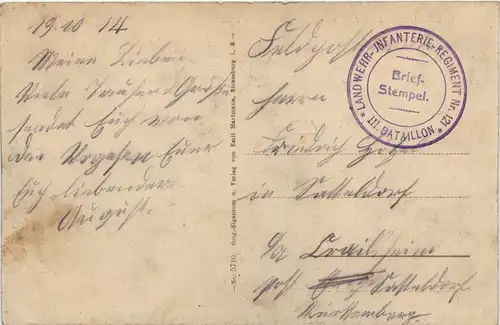 19.10 14
Meine Lieben
Viele Tausend Grüße
sendet Euch von
den Vogesen Euer
Euch liebender
August.
Nr. 5710. Orig.-Eigentum u. Verlag von Emil Hartmann, Strassburg i. E.
Feldpost
LANDWEHR-INFANTERIE-REGIMENT Nr. 121
* III. BATAILLON *
Brief-
Stempel.
Herrn
Friedrich
in Satteldorf
O/A Crailsheim
Post Satteldorf
Württemberg.